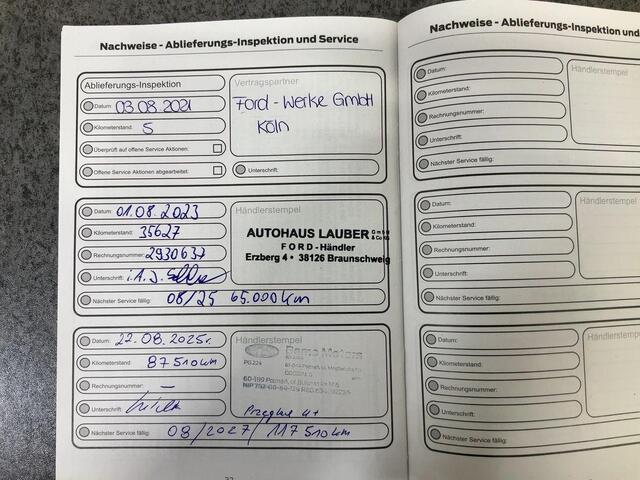 Nachweise - Ablieferungs-Inspektion und Service
Ablieferungs-Inspektion
Datum: 03.08.2021
Kilometerstand: 5
Überprüft auf offene Service Aktionen:
Offene Service Aktionen abgearbeitet:
Vertragspartner
Ford - Werke GmbH
Köln
Unterschrift:
Datum: 01.08.2023
Kilometerstand: 35627
Rechnungsnummer: 2930637
Unterschrift:
Nächster Service fällig: 08/25 65.000 km
Händlerstempel
AUTOHAUS LAUBER GmbH & Co KG
FORD - Händler
Erzberg 4 • 38126 Braunschweig
Datum: 22.08.2025r.
Kilometerstand: 87510 km
Rechnungsnummer: —
Unterschrift
Nächster Service fällig: 08/2027/117510 km
Händlerstempel
Bemo Motors
Nachweise - Ablieferungs-Inspektion und
Datum:
Kilometerstand:
Rechnungsnummer:
Unterschrift:
Nächster Service fällig:
Händlerstempel
Datum:
Kilometerstand:
Rechnungsnummer:
Unterschrift:
Nächster Service fällig:
Händlerstempel
Datum:
Kilometerstand:
Rechnungsnummer:
Unterschrift:
Nächster Service fällig: